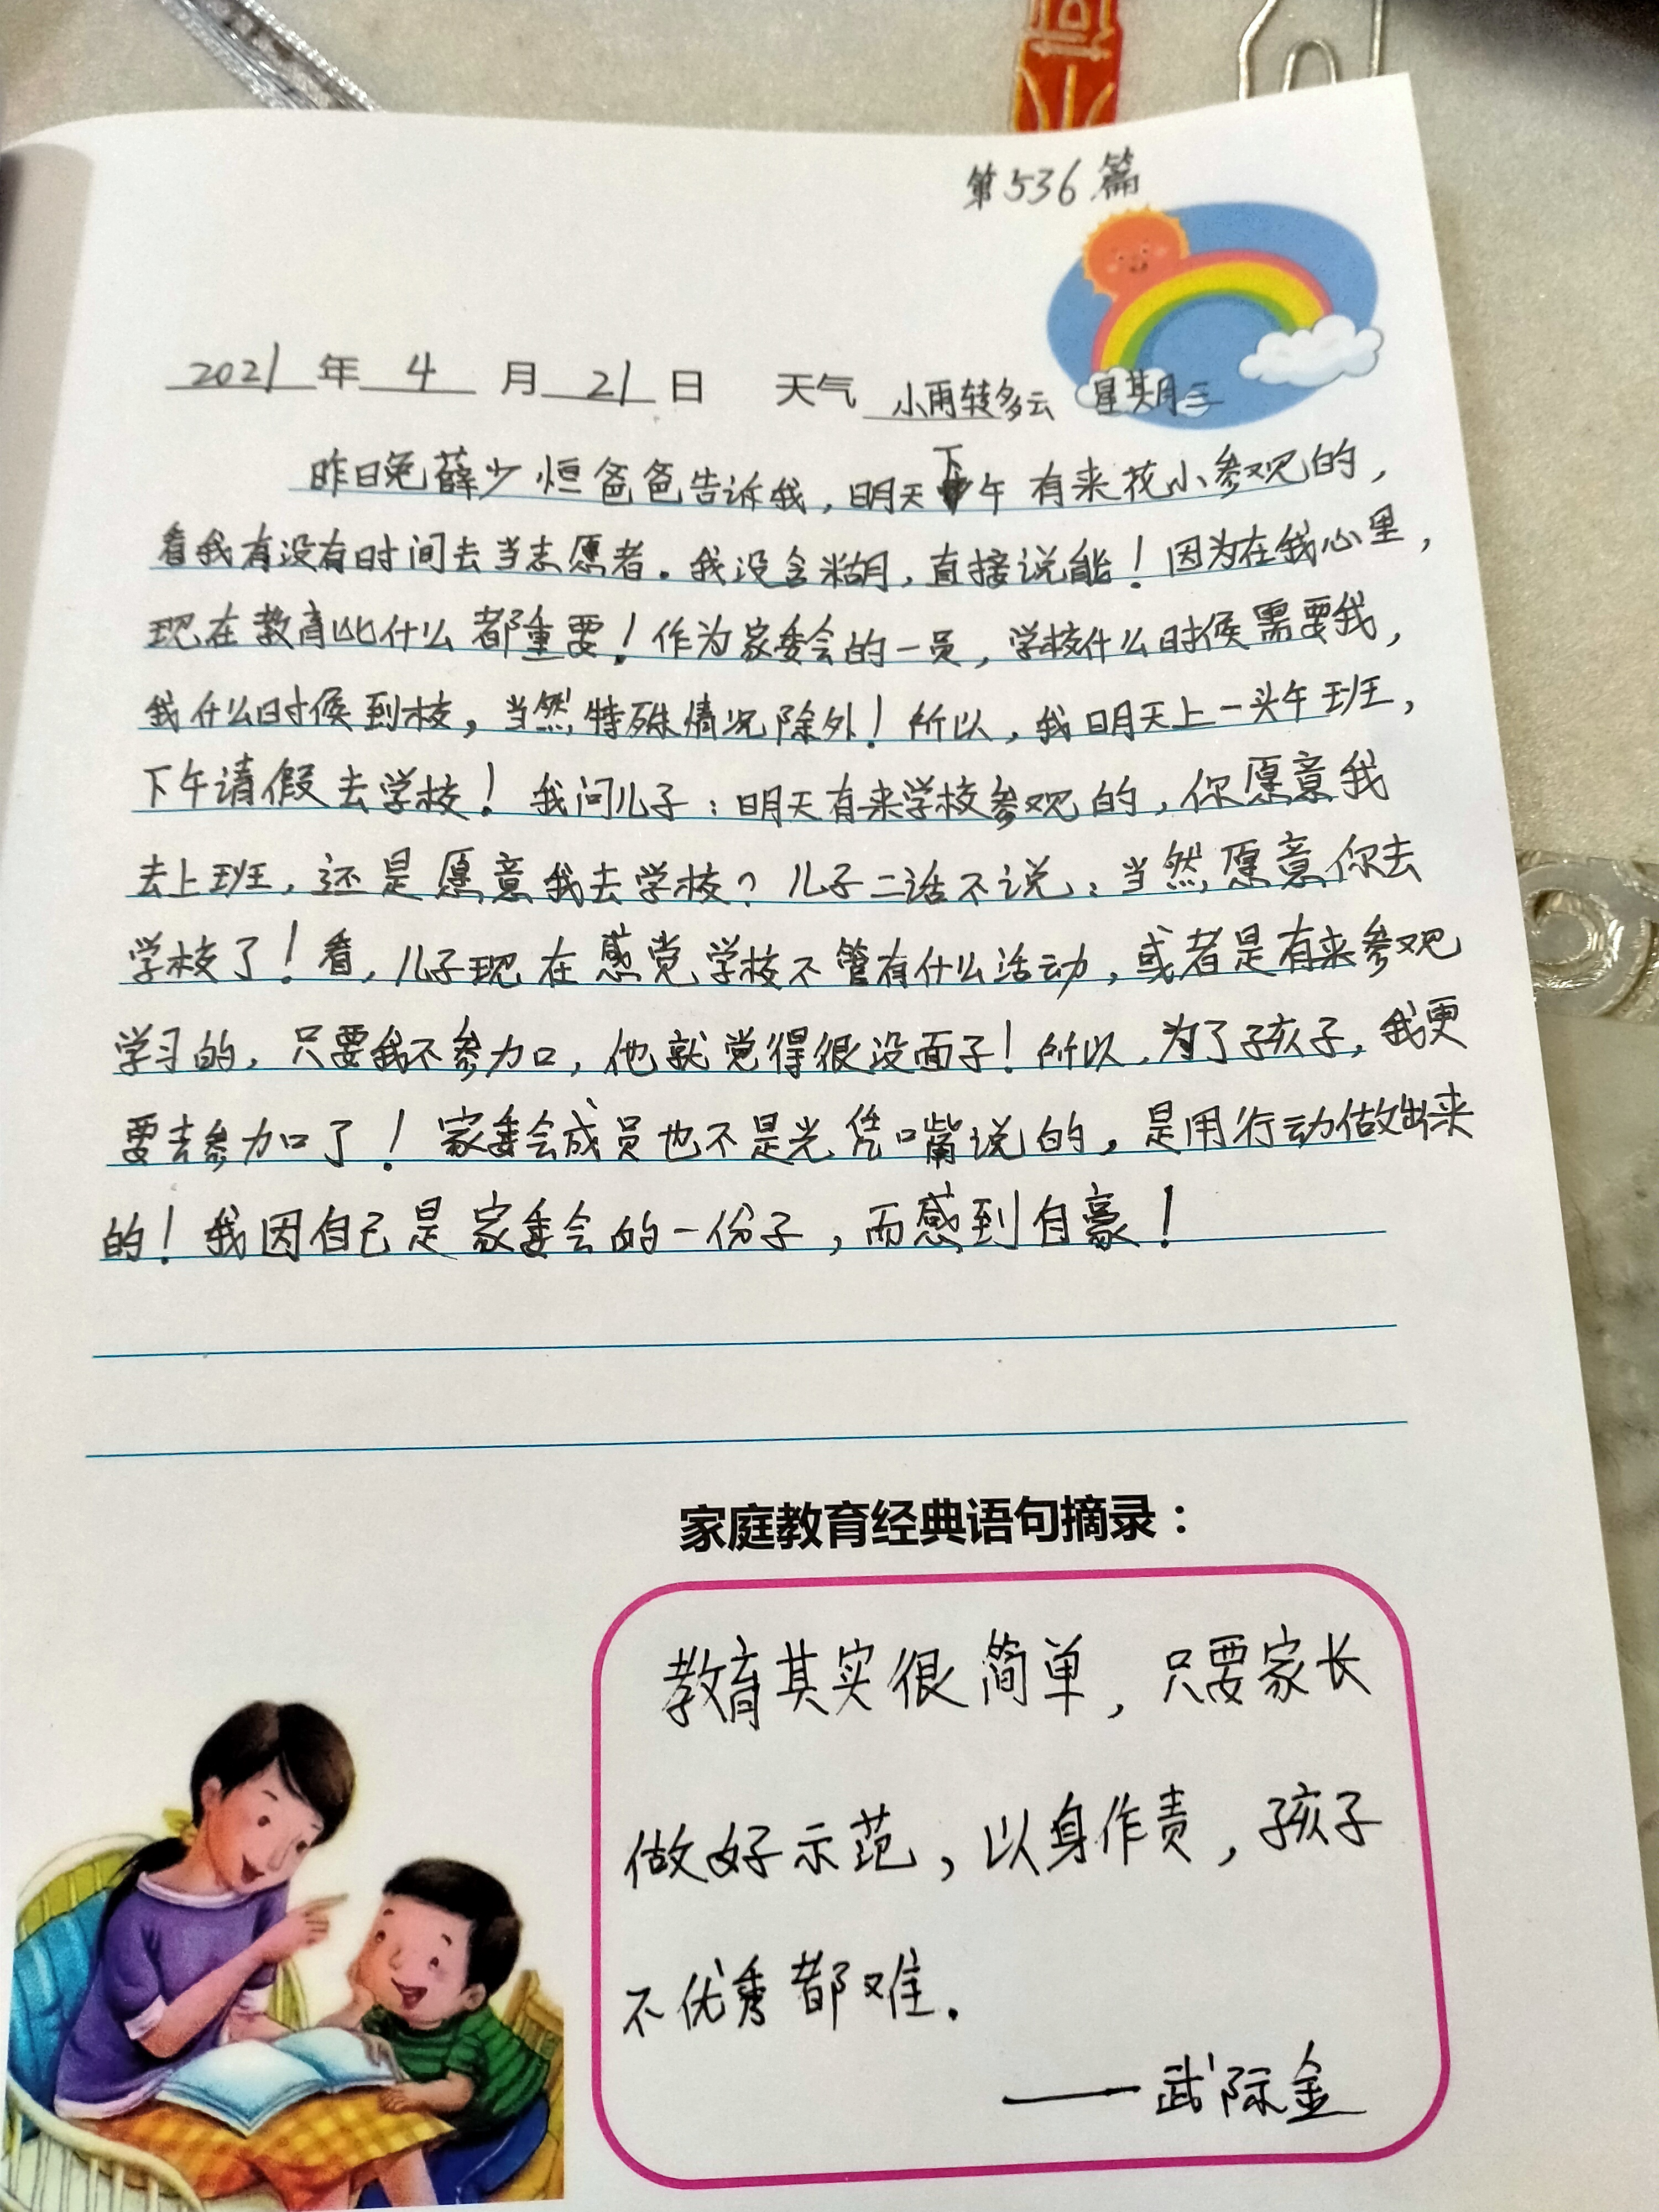 第536篇
2021年4月21日 天气 小雨转多云 星期三
昨日晚薛少恒爸爸告诉我，明天下午有来花小参观的，
看我有没有时间去当志愿者。我没含糊，直接说能！因为在我心里，
现在教育比什么都重要！作为家委会的一员，学校什么时候需要我，
我什么时候到校，当然特殊情况除外！所以，我明天上一头午班，
下午请假去学校！我问儿子：明天有来学校参观的，你愿意我
去上班，还是愿意我去学校？儿子二话不说：当然愿意你去
学校了！看，儿子现在感觉学校不管有什么活动，或者是有来参观
学习的，只要我不参加，他就觉得很没面子！所以，为了孩子，我更
要去参加了！家委会成员也不是光凭嘴说的，是用行动做出来
的！我因自己是家委会的一份子，而感到自豪！
家庭教育经典语句摘录：
教育其实很简单，只要家长
做好示范，以身作责，孩子
不优秀都难。
——武际金